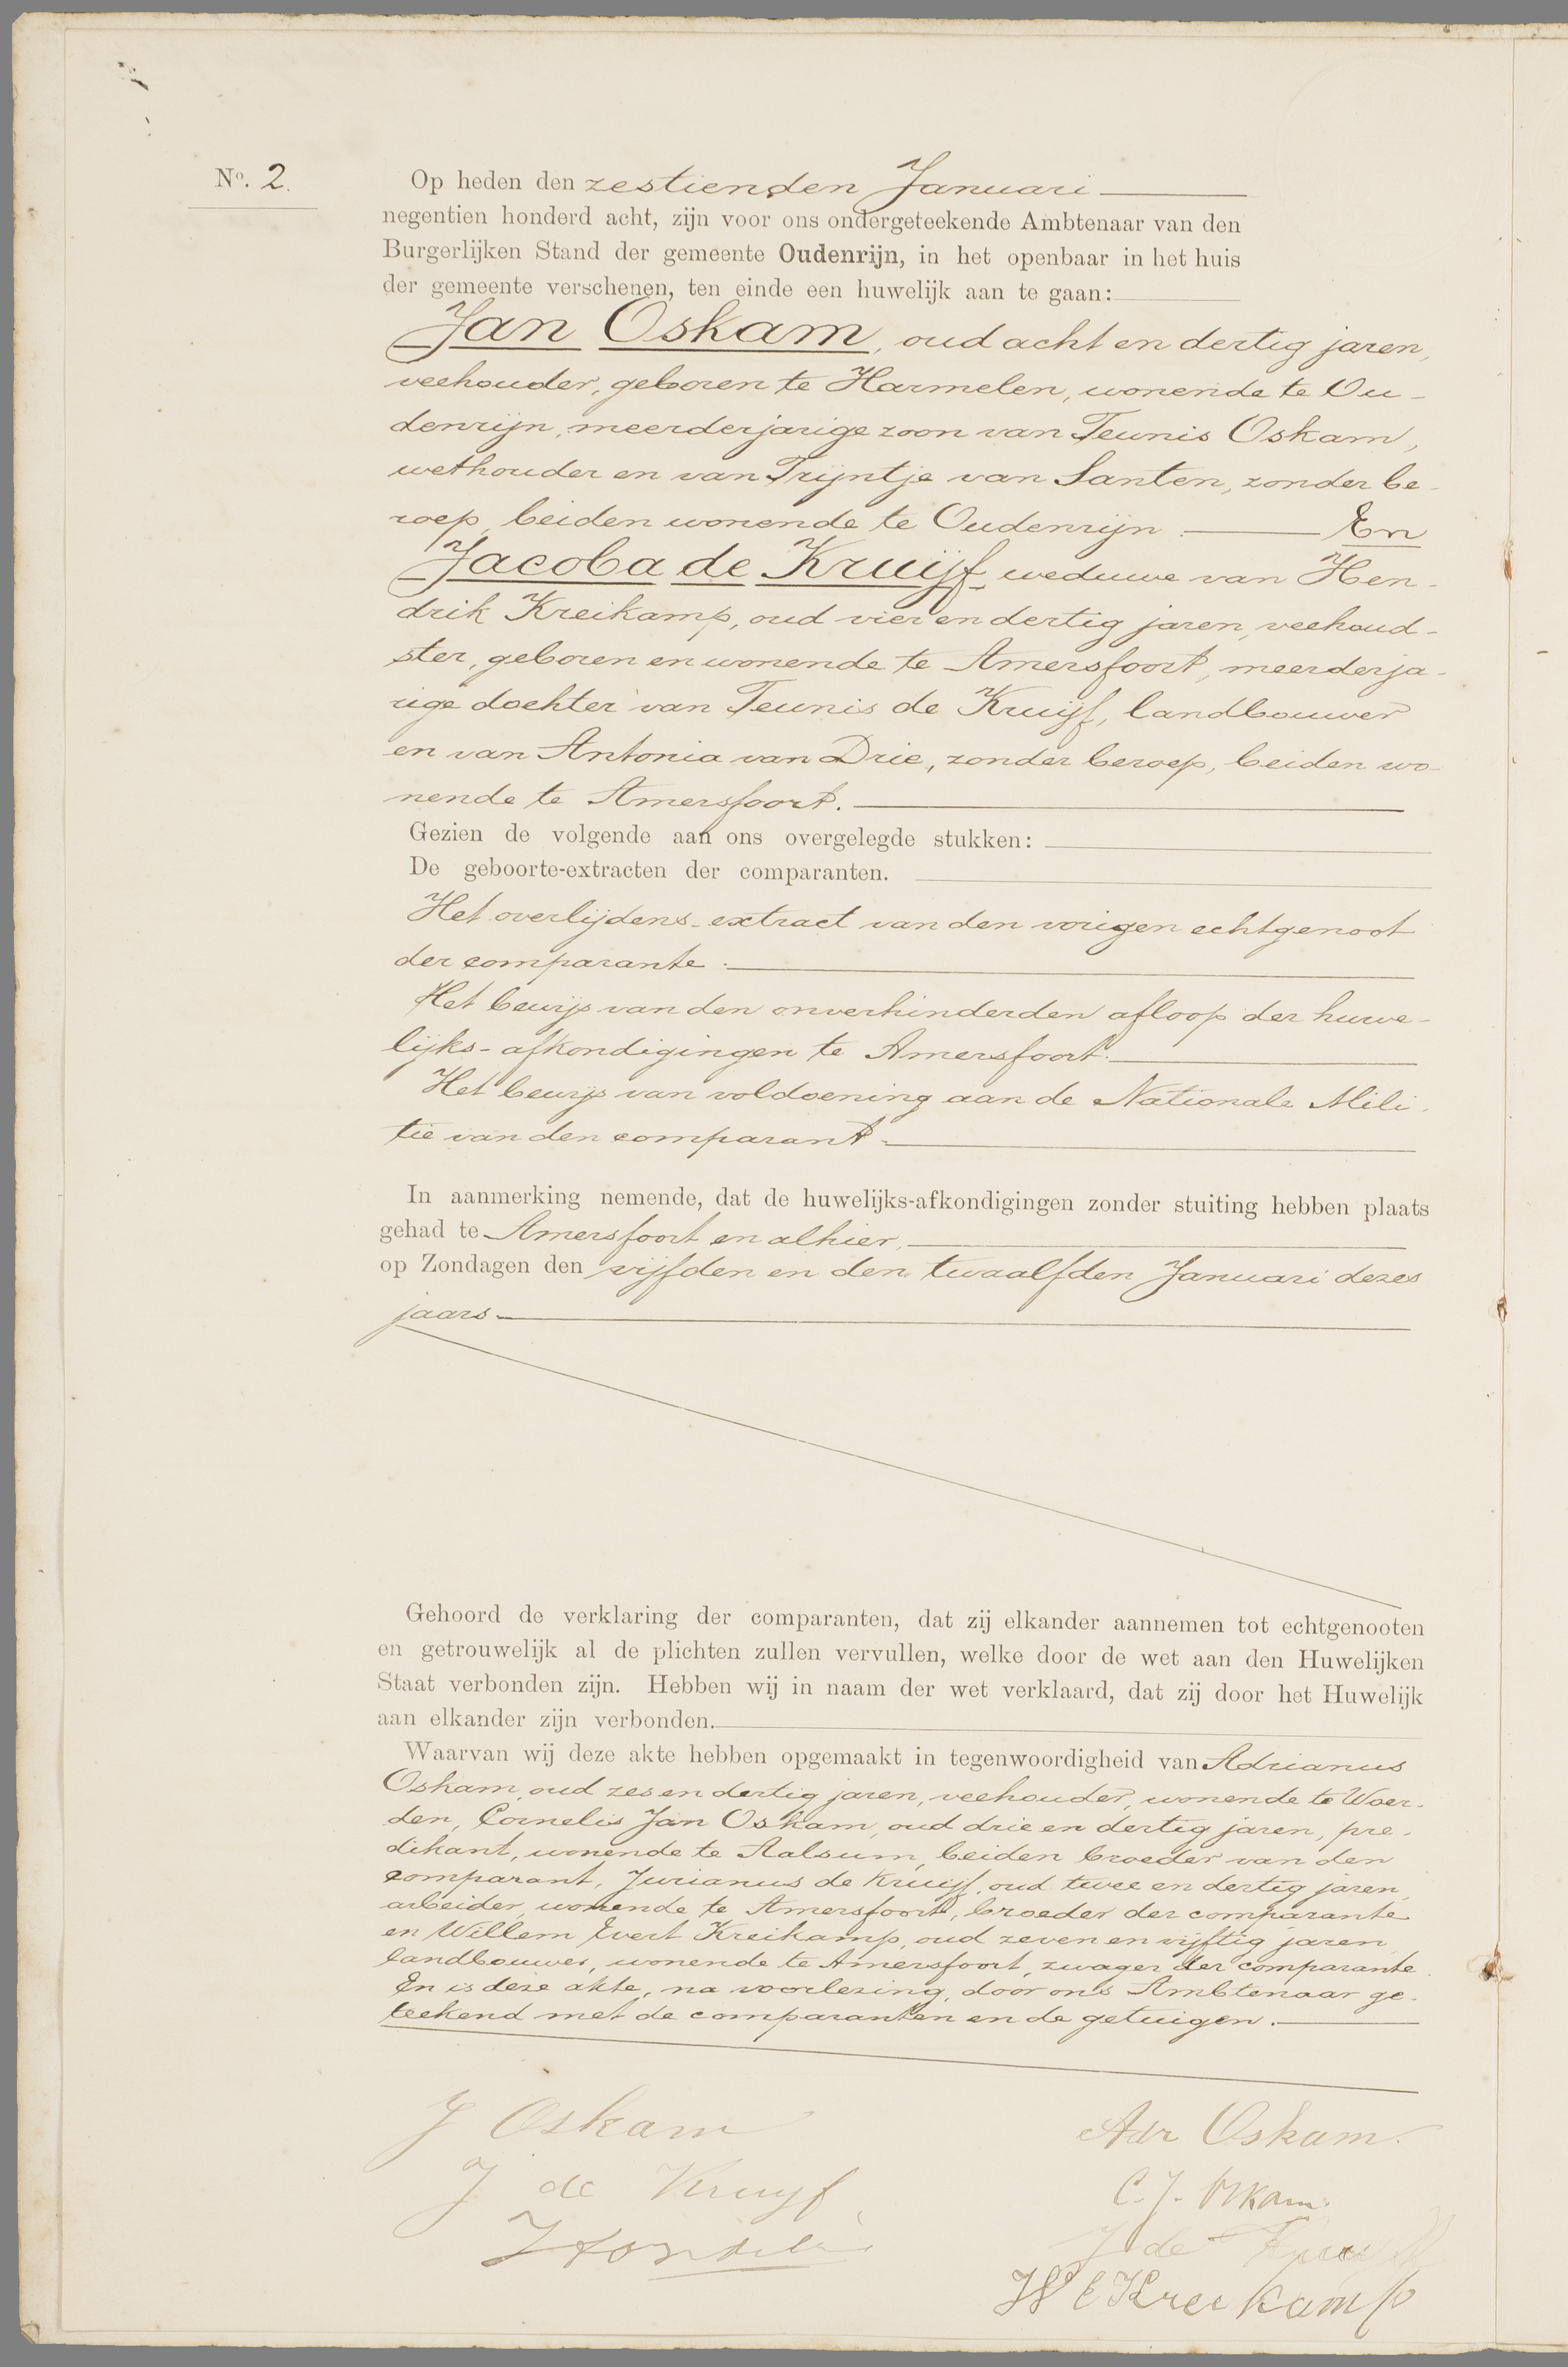 No. 2.
Op heden den zestienden Januari
negentien honderd acht, zijn voor ons ondergeteekende Ambtenaar van den
Burgerlijken Stand der gemeente Oudenrijn, in het openbaar in het huis
der gemeente verschenen, ten einde een huwelijk aan te gaan:
Jan Oskam, oud acht en dertig jaren,
veehouder, geboren te Harmelen, wonende te Ou-
denrijn, meerderjarige zoon van Teunis Oskam,
wethouder en van Trijntje van Santen, zonder be-
roep, beiden wonende te Oudenrijn. En
Jacoba de Kruijf, weduwe van Hen-
drik Kreikamp, oud vier en dertig jaren, veehoud-
ster, geboren en wonende te Amersfoort, meerderja-
rige dochter van Teunis de Kruijf, landbouwer
en van Antonia van Drie, zonder beroep, beiden wo-
nende te Amersfoort.
Gezien de volgende aan ons overgelegde stukken:
De geboorte-extracten der comparanten.
Het overlijdens-extract van den vorigen echtgenoot
der comparante.
Het bewijs van den onverhinderden afloop der huwe-
lijks-afkondigingen te Amersfoort.
Het bewijs van voldoening aan de Nationale Mili-
tie van den comparant.
In aanmerking nemende, dat de huwelijks-afkondigingen zonder stuiting hebben plaats
gehad te Amersfoort en alhier,
op Zondagen den vijfden en den twaalfden Januari dezes
jaars.
Gehoord de verklaring der comparanten, dat zij elkander aannemen tot echtgenooten
en getrouwelijk al de plichten zullen vervullen, welke door de wet aan den Huwelijken
Staat verbonden zijn. Hebben wij in naam der wet verklaard, dat zij door het Huwelijk
aan elkander zijn verbonden.
Waarvan wij deze akte hebben opgemaakt in tegenwoordigheid van Adrianus
Oskam, oud zes en dertig jaren, veehouder, wonende te Woer-
den, Cornelis Jan Oskam, oud drie en dertig jaren, pre-
dikant, wonende te Aalsum, beiden broeder van den
comparant, Jurianus de Kruijf, oud twee en dertig jaren,
arbeider, wonende te Amersfoort, broeder der comparante
en Willem Evert Kreikamp, oud zeven en vijftig jaren
landbouwer, wonende te Amersfoort, zwager der comparante.
En is deze akte, na voorlezing, door ons Ambtenaar ge-
teekend met de comparanten en de getuigen.
J Oskam
Adr Oskam.
J de Kruyf
C. J. Oskam.
J de
W E Kreikamp